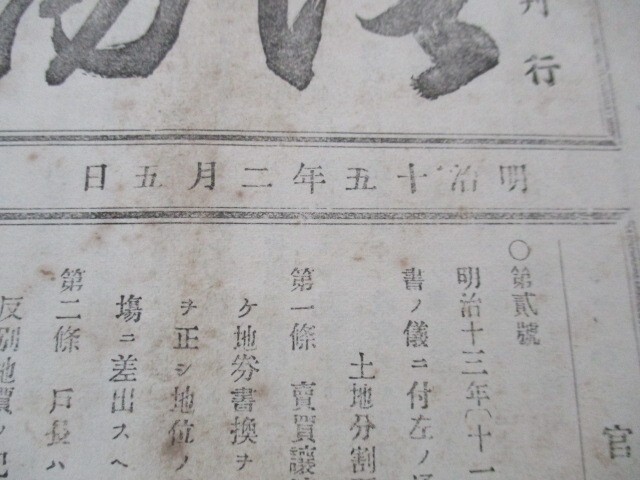 刊行
明治十五年二月五日
官
〇第貳號
明治十三年(十一
書ノ儀ニ付左ノ
土地分割
第一條 賣買讓
ケ地券書換ヲ
ヲ正シ地位ノ
塲ニ差出スヘ
第二條 戸長ハ
反別地價ノ記